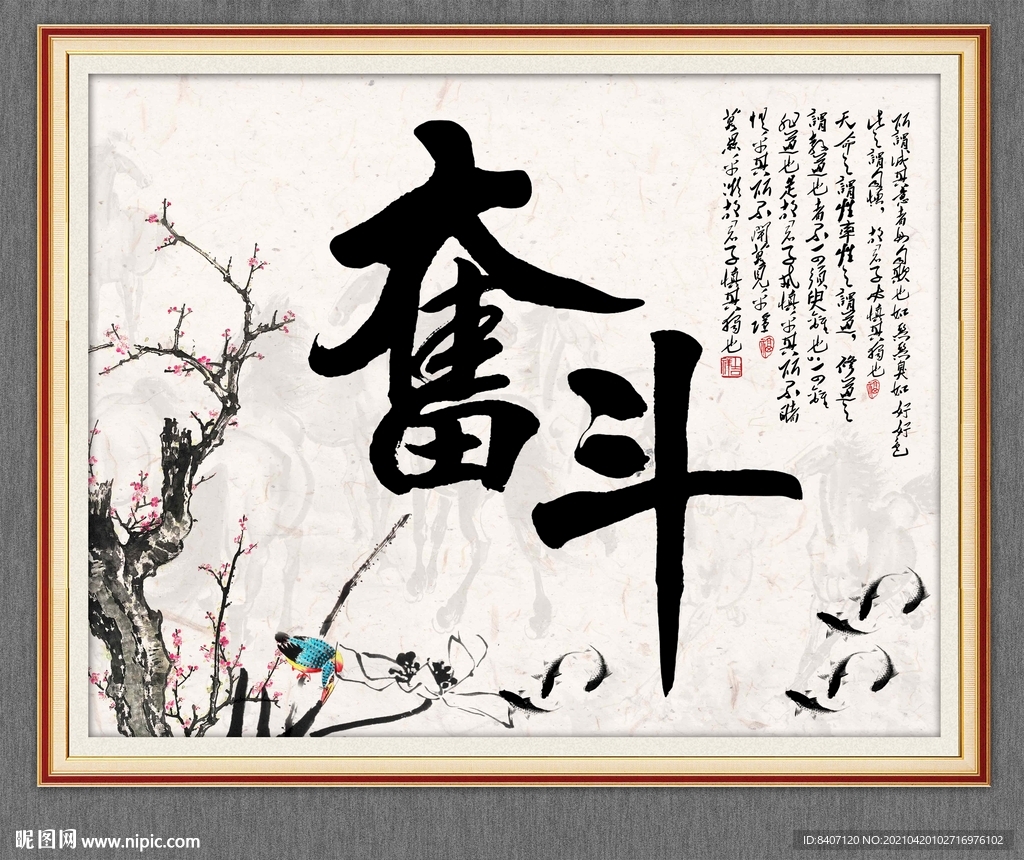 奋斗
所謂誠其意者毋自欺也如惡惡臭如好好色
此之謂自慊，故君子必慎其獨也
天命之謂性率性之謂道，修道之
謂教道也者不可須臾離也可離
非道也是故君子戒慎乎其所不睹
懼乎其所不聞莫見乎隱
莫顯乎微故君子慎其獨也
昵图网 www.nipic.com
ID:8407120 NO:20210420102716976102